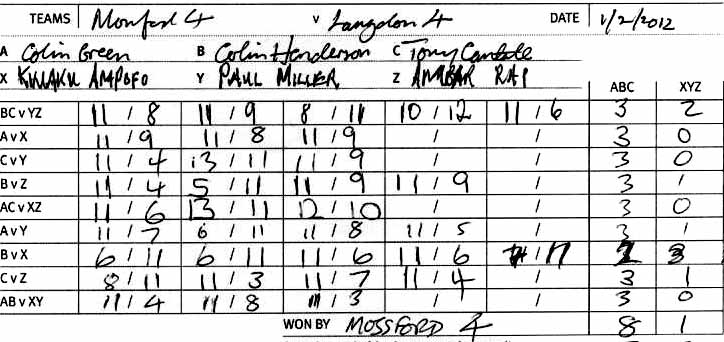 TEAMS Mossford 4 v Langdon 4 DATE 1/2/2012
A Colin Green B Colin Henderson C Tony
X KWAKU AMPOFO Y PAUL MILLER Z AMBAR RAI
ABC XYZ
BC v YZ 11 / 8 11 / 9 8 / 11 10 / 12 11 / 6 3 2
A v X 11 / 9 11 / 8 11 / 9 / / 3 0
C v Y 11 / 4 13 / 11 11 / 9 / / 3 0
B v Z 11 / 4 5 / 11 11 / 9 11 / 9 / 3 1
AC v XZ 11 / 6 13 / 11 12 / 10 / / 3 0
A v Y 11 / 7 6 / 11 11 / 8 11 / 5 / 3 1
B v X 6 / 11 6 / 11 11 / 6 11 / 6 / 11 2 3
C v Z 8 / 11 11 / 3 11 / 7 11 / 4 / 3 1
AB v XY 11 / 4 11 / 8 11 / 3 / / 3 0
WON BY MOSSFORD 4 8 1